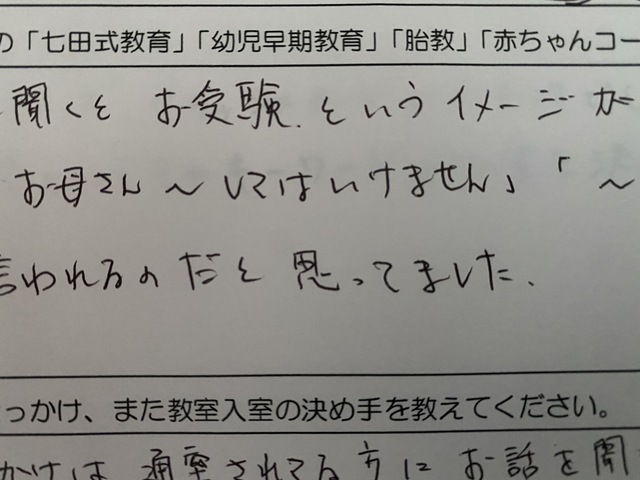 の「七田式教育」「幼児早期教育」「胎教」「赤ちゃんコー
聞くと お受験、というイメージが
お母さん 〜してはいけません」「〜
言われるのだと思ってました。
っかけ、また教室入室の決め手を教えてください。
かけは、通室されてる方にお話を聞